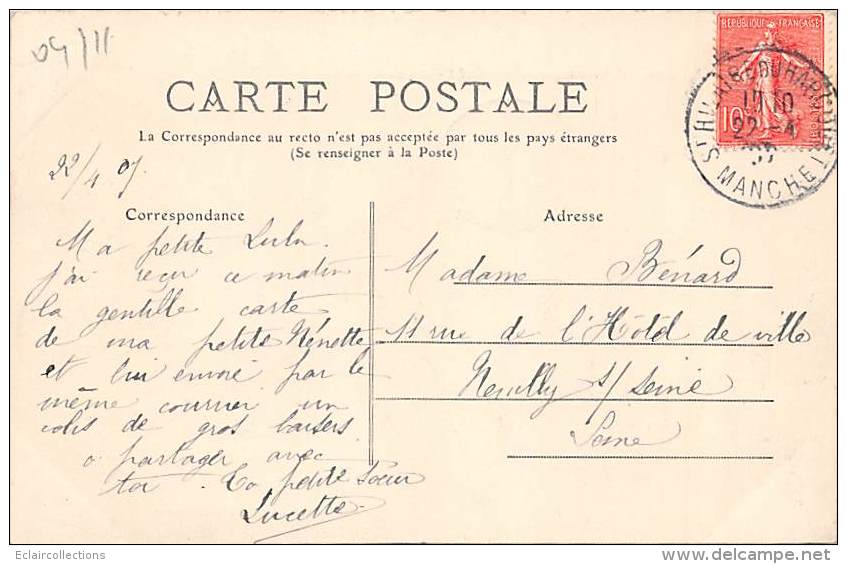 04/11
REPUBLIQUE FRANÇAISE
10
ST HILAIRE DU HARCOUET
17 10
22 - 4
MANCHE
CARTE POSTALE
La Correspondance au recto n'est pas acceptée par tous les pays étrangers
(Se renseigner à la Poste)
22/4 07
Correspondance
Ma petite Lulu
j'ai reçu ce matin
la gentille carte
de ma petite Nénette
et lui envoie par le
même courrier un
colis de gros baisers
a partager avec
toi. Ta petite Sœur
Lucette
Adresse
Madame Bénard
11 rue de l'Hôtel de ville
Neuilly s/ Seine
Seine
Eclaircollections
www.delcampe.net